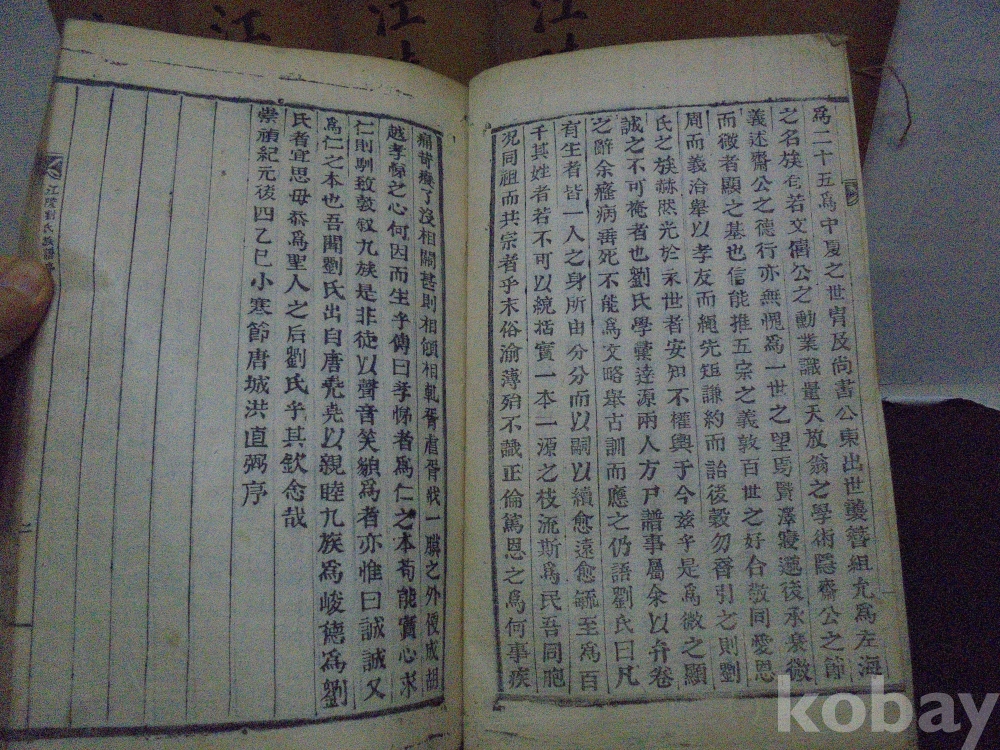 爲二十五爲中夏之世胄及尚書公東出世襲簪組尤爲左海
之名族有若文僖公之勳業識量天放翁之學術隱齋公之節
義述齋公之德行亦無愧爲一世之望焉賢澤寢遞後承衰微
而微者顯之基也信能推五宗之義敦百世之好合敬同愛恩
周而義洽擧以孝友而繩先矩謙約而詒後穀勿替引之則劉
氏之族赫然光於永世者安知不權輿于今玆乎是爲微之顯
誠之不可掩者也劉氏學彙逵源兩人方尸譜事屬余以弁卷
之辭余癃病垂死不能爲文略擧古訓而應之仍語劉氏曰凡
有生者皆一人之身所由分分而以嗣以續愈遠愈緜至爲百
千其姓者若不可以統括實一本二源之枝流斯爲民吾同胞
况同祖而共宗者乎末俗渝薄殆不識正倫篤恩之爲何事疾
痛苛癢了沒相關甚則相傾相軋胥虐胥戕一臠之外便成胡
越孝悌之心何因而生乎傳曰孝悌者爲仁之本苟能實心求
仁則馴致敦叙九族是非徒以聲音笑貌爲者亦惟曰誠誠又
爲仁之本也吾聞劉氏出自唐堯堯以親睦九族爲峻德爲劉
氏者宜思毋忝爲聖人之后劉氏乎其欽念哉
崇禎紀元後四乙巳小寒節唐城洪直弼序
江陵劉氏族譜
二
江
江
江
kobay